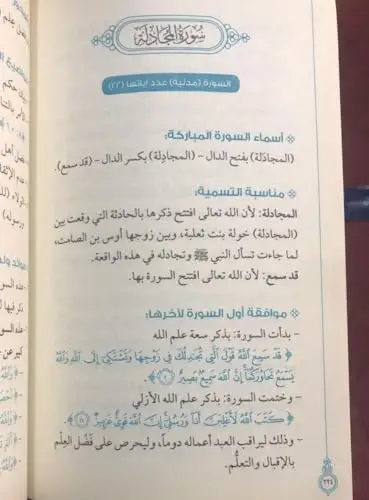 سُورَةُ المُجَادلَة
السورة (مدنية) عدد آياتها (٢٢)
أسماء السورة المباركة:
(المجادَلة) بفتح الدال – (المجادِلة) بكسر الدال – (قد سمع).
مناسبة التسمية:
المجادلة: لأن الله تعالى افتتح ذكرها بالحادثة التي وقعت بين
(المجادلة) خولة بنت ثعلبة، وبين زوجها أوس بن الصامت،
لما جاءت تسأل النبي ﷺ وتجادله في هذه الواقعة.
قد سمع: لأن الله تعالى افتتح السورة بها.
موافقة أول السورة لآخرها:
– بدأت السورة: بذكر سعة علم الله
﴿ قَدْ سَمِعَ ٱللَّهُ قَوْلَ ٱلَّتِي تُجَٰدِلُكَ فِي زَوْجِهَا وَتَشْتَكِيٓ إِلَى ٱللَّهِ وَٱللَّهُ
يَسْمَعُ تَحَاوُرَكُمَآ إِنَّ ٱللَّهَ سَمِيعٌۢ بَصِيرٌ ١ ﴾
– وختمت السورة: بذكر علم الله الأزلي
﴿ كَتَبَ ٱللَّهُ لَأَغْلِبَنَّ أَنَا۠ وَرُسُلِيٓ إِنَّ ٱللَّهَ قَوِيٌّ عَزِيزٌ ٢١ ﴾
– وذلك ليراقب العبد أعماله دوماً، وليحرص على فَضْل العِلْم
بالإقبال والتعلُّم.